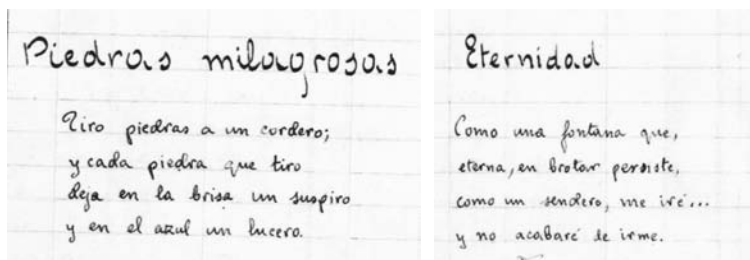 Piedras milagrosas
Tiro piedras a un cordero;
y cada piedra que tiro
deja en la brisa un suspiro
y en el azul un lucero.
Eternidad
Como una fontana que,
eterna, en brotar persiste,
como un sendero, me iré...
y no acabaré de irme.